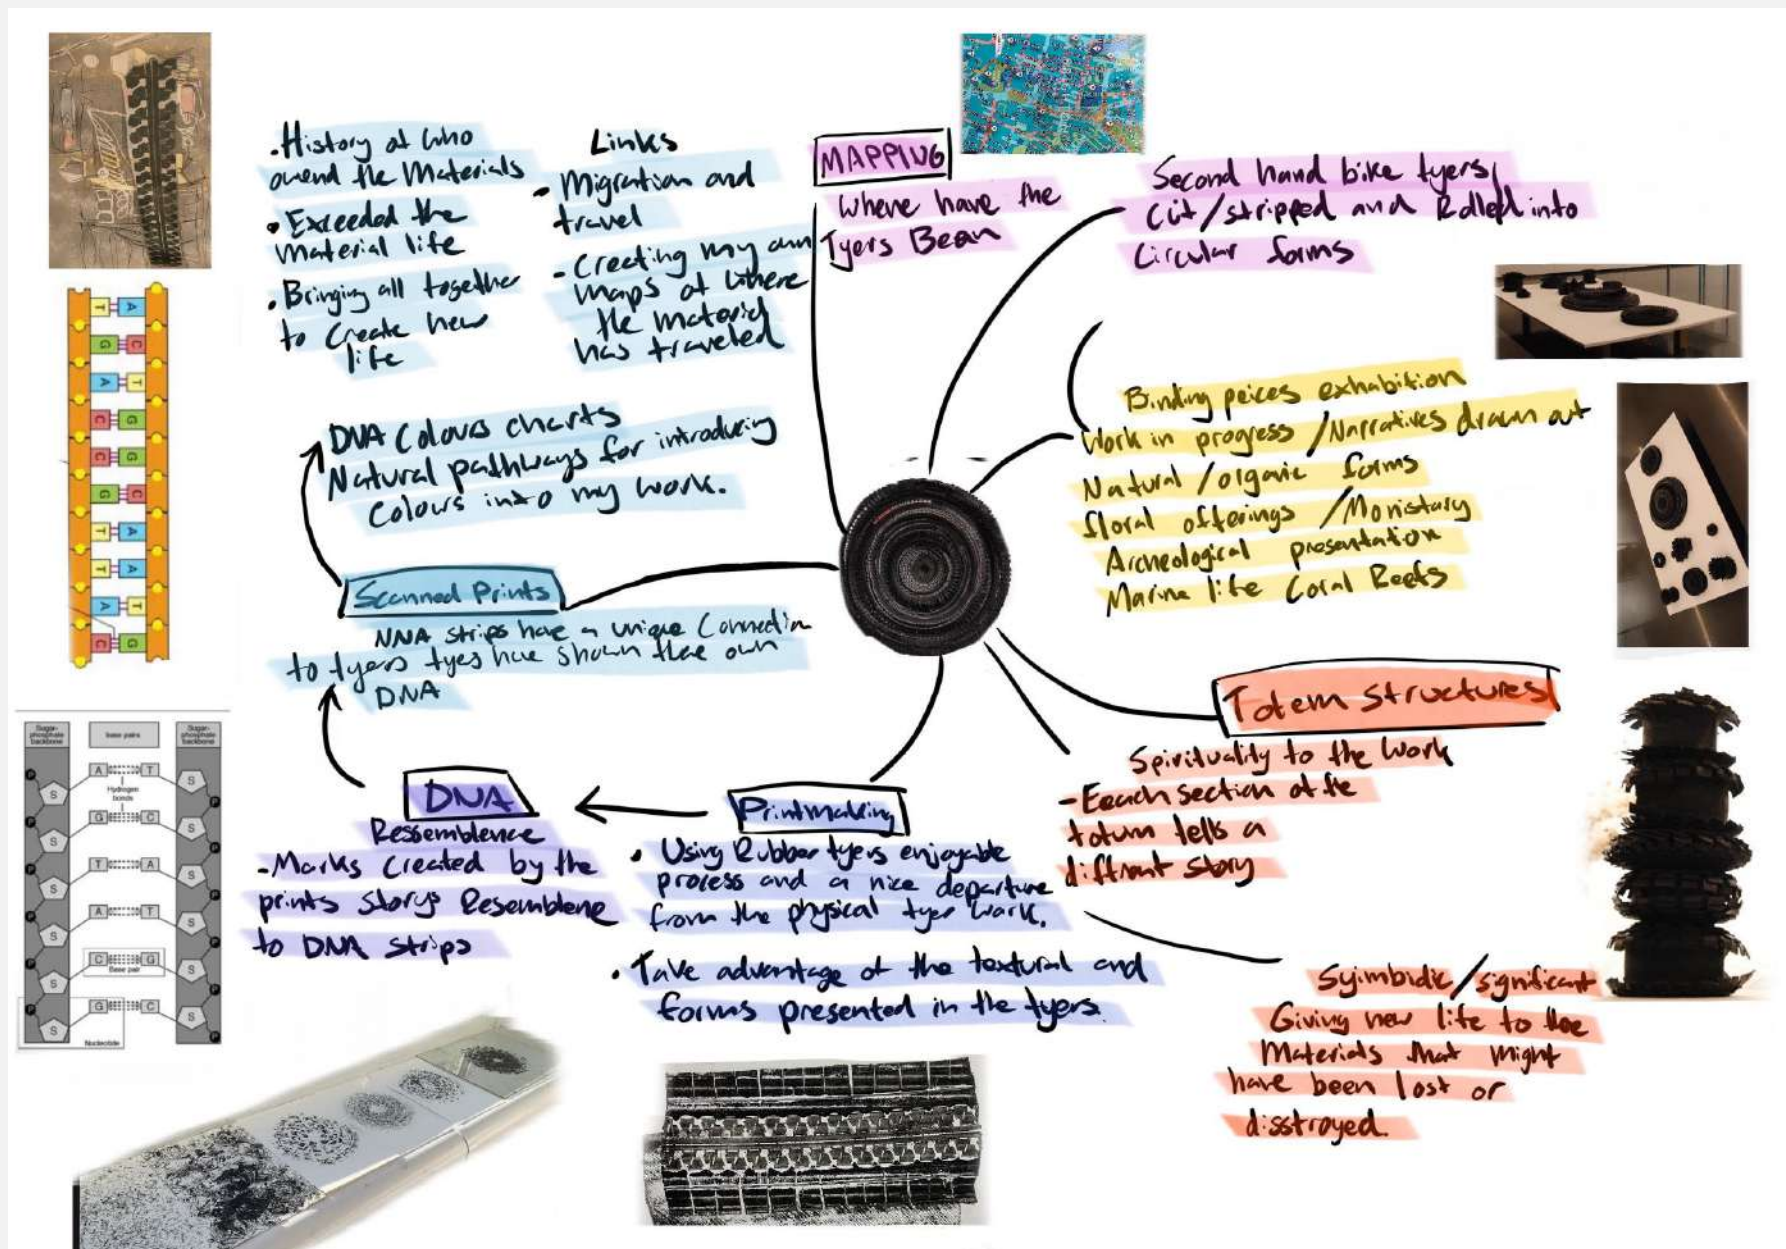 • History of who
owend the Materials
• Exceeded the
Material life
• Bringing all together
to Create new
life
Links
• Migration and
travel
- Creating my own
maps of where
the material
has traveled
MAPPING
Where have the
Tyers Bean
Second hand bike tyers
Cut/stripped and Rolled into
Circular forms
Binding peices exhabition
Work in progress /Narratives drawn out
Natural /organic forms
floral offerings /Monistary
Archeological presentation
Marine life Coral Reefs
DNA Colours charts
Natural pathways for introducing
Colours into my work.
Scanned Prints
NNA strips have a unique Connection
to tyers tyes have shown there own
DNA
Totem Structures
Spirituality to the work
- Eeach section of the
totum tells a
diffrent story
Syimbidic/significant
Giving new life to the
Materials that might
have been lost or
disstroyed.
Printmaking
• Using Rubber tyers enjoyable
process and a nice departure
from the physical tyer work.
• Take advantage of the textural and
forms presented in the tyers.
DNA
Ressemblence
- Marks Created by the
prints storys Resemblene
to DNA strips
T A
G C
A T
C G
C G
G C
T A
T A
A T
C G
Sugar-
phosphate
backbone
base pairs
Sugar-
phosphate
backbone
P S A T S P
Hydrogen
bonds
P S G C S P
P S T A S P
P S A T S P
P S C G S P
Base pair
P S G C S P
Nucleotide